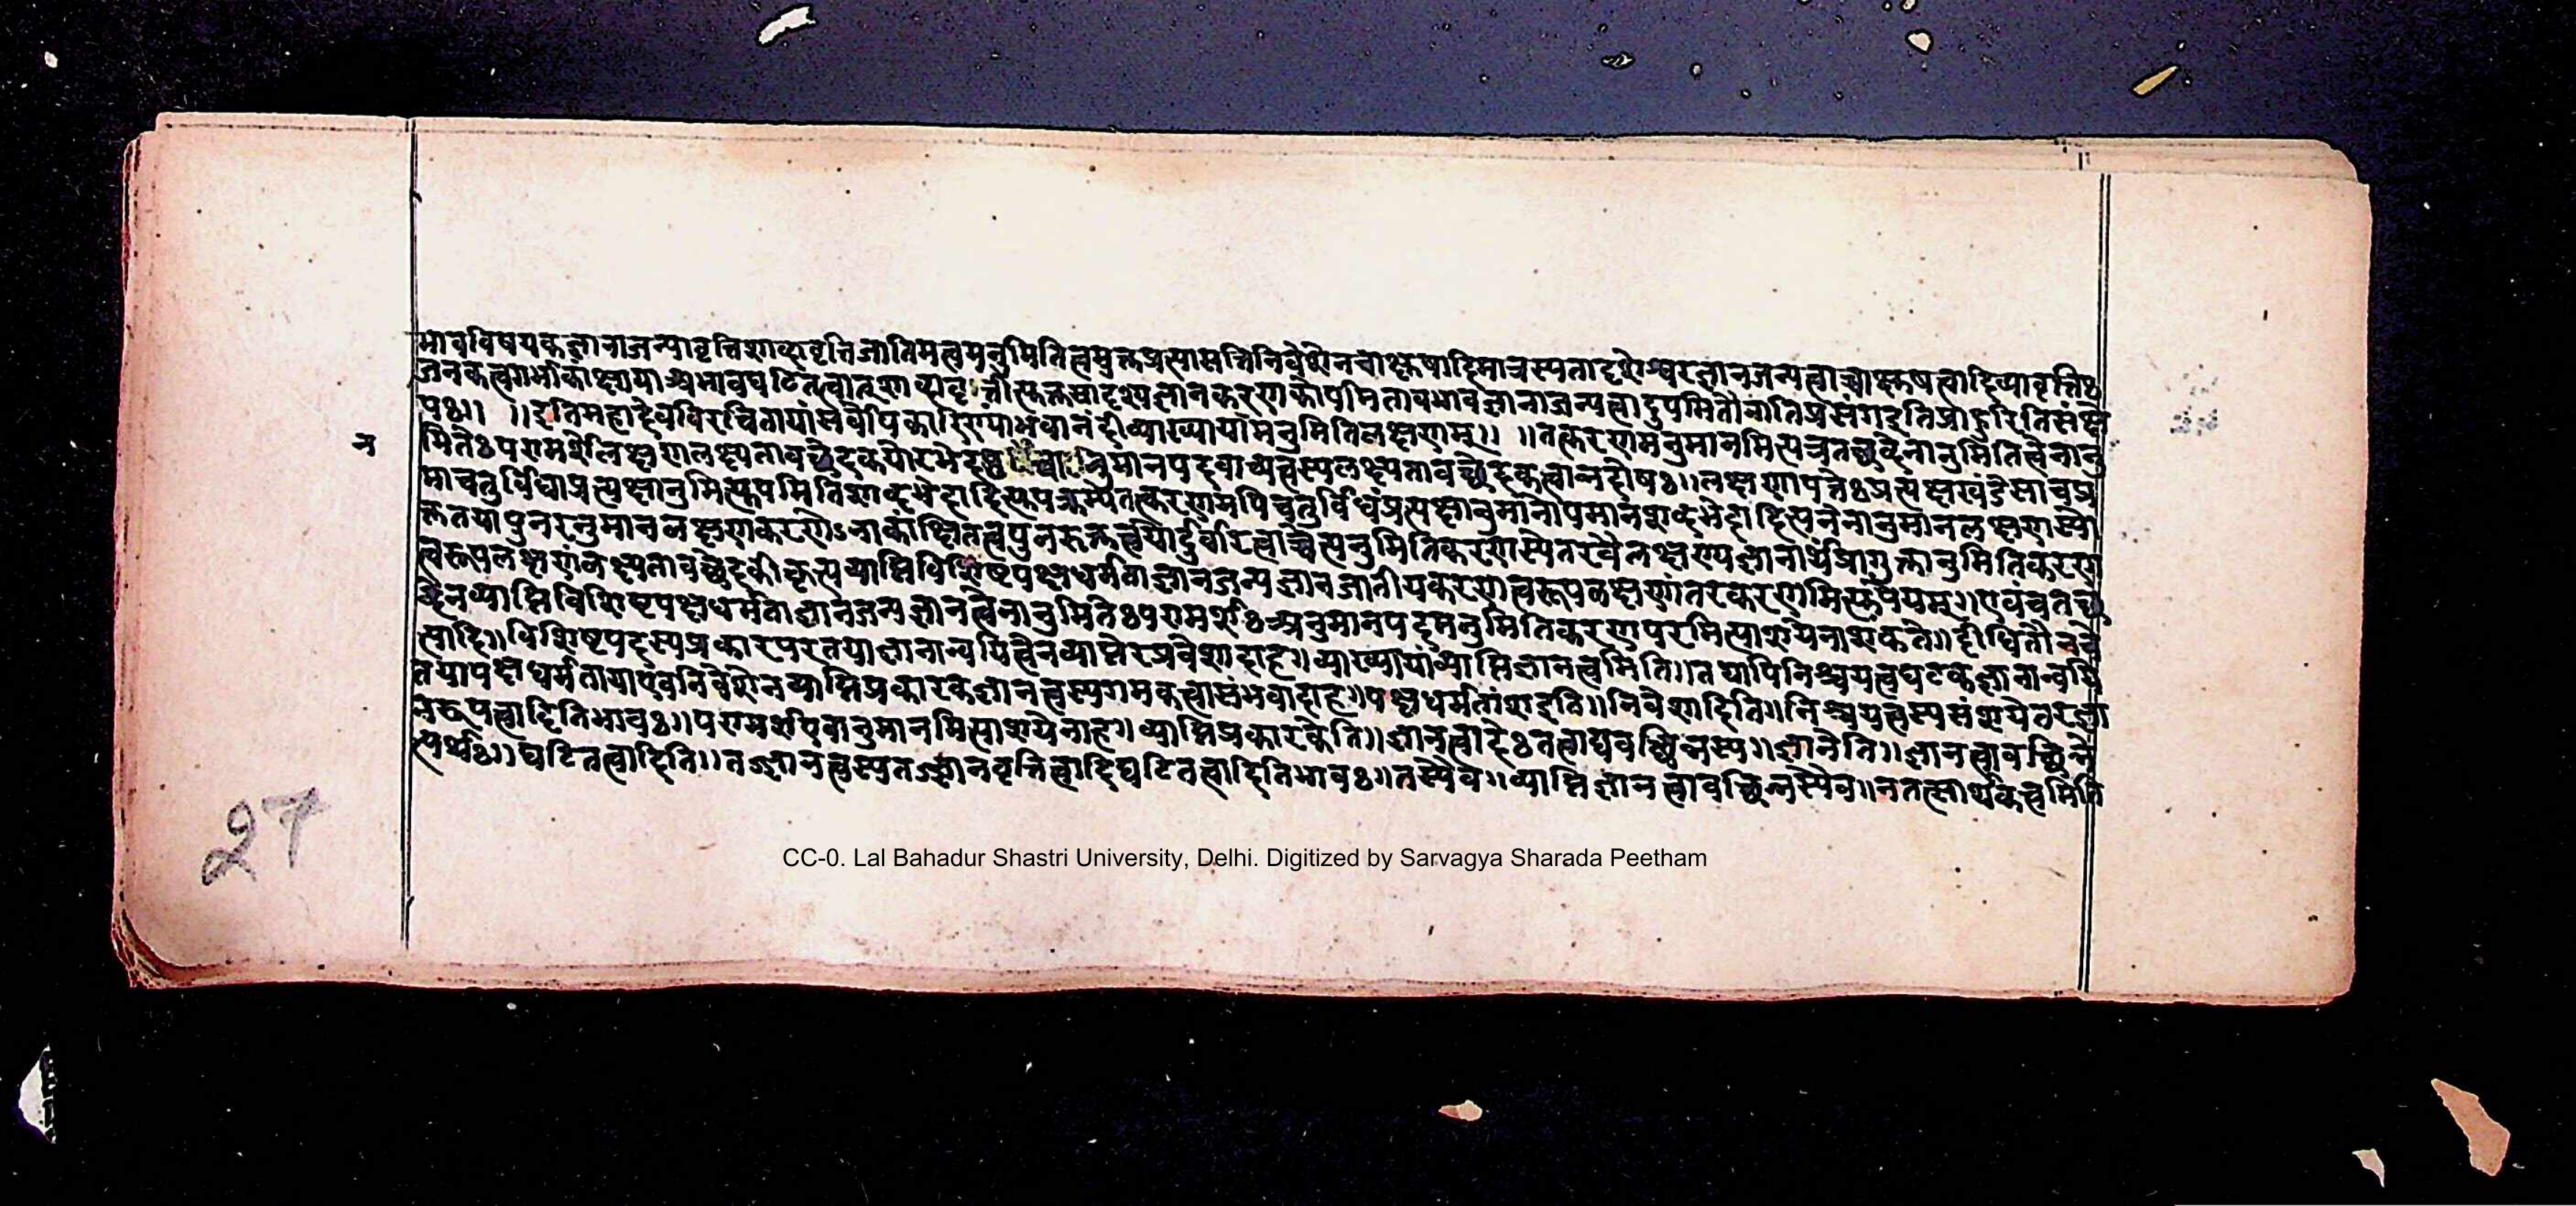 भावविषयकज्ञानाजन्यावृत्तिशाब्दवृत्तिजातिमत्वमनुमितित्वमुक्तप्रत्यासत्तिनिवेशेनचाक्षुषादिमात्रस्यतादृशेश्वरज्ञानजन्यत्वाच्चाक्षुषत्वादिव्यावृत्तिः
जनकत्वगर्भाकांक्षायाअभावघटितत्वात्शाब्दवृत्तीत्युक्तसादृश्यज्ञानकरणकोपमितावभावज्ञानाजन्यत्वादुपमितौनातिप्रसंगइतिप्राहुरितिसंक्षे
पः।। ।।इतिमहादेवविरचितायांसर्वोपकारिण्यांभवानंदीव्याख्यायामनुमितिलक्षणम्।। ।।तत्करणमनुमानमित्यत्रतच्छब्देनानुमितित्वेनानु
न
मितेःपरामर्शेलक्षणलक्ष्यतावच्छेदकयोरभेदानुमानपदवाच्यत्वस्यलक्ष्यतावच्छेदकत्वान्नदोषः।।लक्षणापत्तेःप्रत्यक्षखंडेसाचप्र
माचतुर्विधाप्रत्यक्षानुमित्युपमितिशाब्दभेदादित्युपक्रम्यैतत्करणमपिचतुर्विधंप्रत्यक्षानुमानोपमानशब्दभेदादित्यनेनानुमानलक्षणस्यो
क्ततयापुनरनुमानलक्षणकरणेऽनाकांक्षितत्वपुनरुक्तत्वयोर्दुर्वारत्वाच्चेत्यनुमितिकरणस्येतरवैलक्षण्यज्ञानार्थंप्रागुक्तानुमितिकरण
त्वरूपलक्षणंलक्ष्यतावच्छेदकीकृत्यव्याप्तिविशिष्टपक्षधर्मताज्ञानजन्यज्ञानजातीयकरणत्वरूपलक्षणांतरकरणमित्युपेयम्।।एवंचतच्छ
ब्देनव्याप्तिविशिष्टपक्षधर्मताज्ञानजन्यज्ञानत्वेनानुमितेःपरामर्शःअनुमानपदमनुमितिकरणपरमित्याशयेनाशंकते।।दीधितौनचे
त्यादि।।विशिष्टपदस्यप्रकारपरतयाज्ञानान्वयित्वेनव्याप्तेरप्रवेशादाह।।व्याख्यायांव्याप्तिज्ञानत्वमिति।।तथापिनिश्चयत्वघटकज्ञानान्वयि
तयापक्षधर्मतायाएवनिवेशेनव्याप्तिप्रकारकज्ञानत्वस्यगमकत्वासंभवादाह।।पक्षधर्मतांशइति।।निवेशादिति।।निश्चयत्वस्यसंशयेतरज्ञा
नरूपत्वादितिभावः।।परामर्शएवानुमानमित्याशयेनाह।।व्याप्तिप्रकारकेति।।ज्ञानत्वादेःतत्वाद्यवच्छिन्नस्य।।ज्ञानेति।।ज्ञानत्वावच्छिन्ने
त्यर्थः।।घटितत्वादिति।।तज्ज्ञानत्वस्यतज्ज्ञानवृत्तित्वादिघटितत्वादितिभावः।।तस्यैव।।व्याप्तिज्ञानत्वावच्छिन्नस्यैव।।नतत्सार्थकत्वमिति
27
CC-0. Lal Bahadur Shastri University, Delhi. Digitized by Sarvagya Sharada Peetham